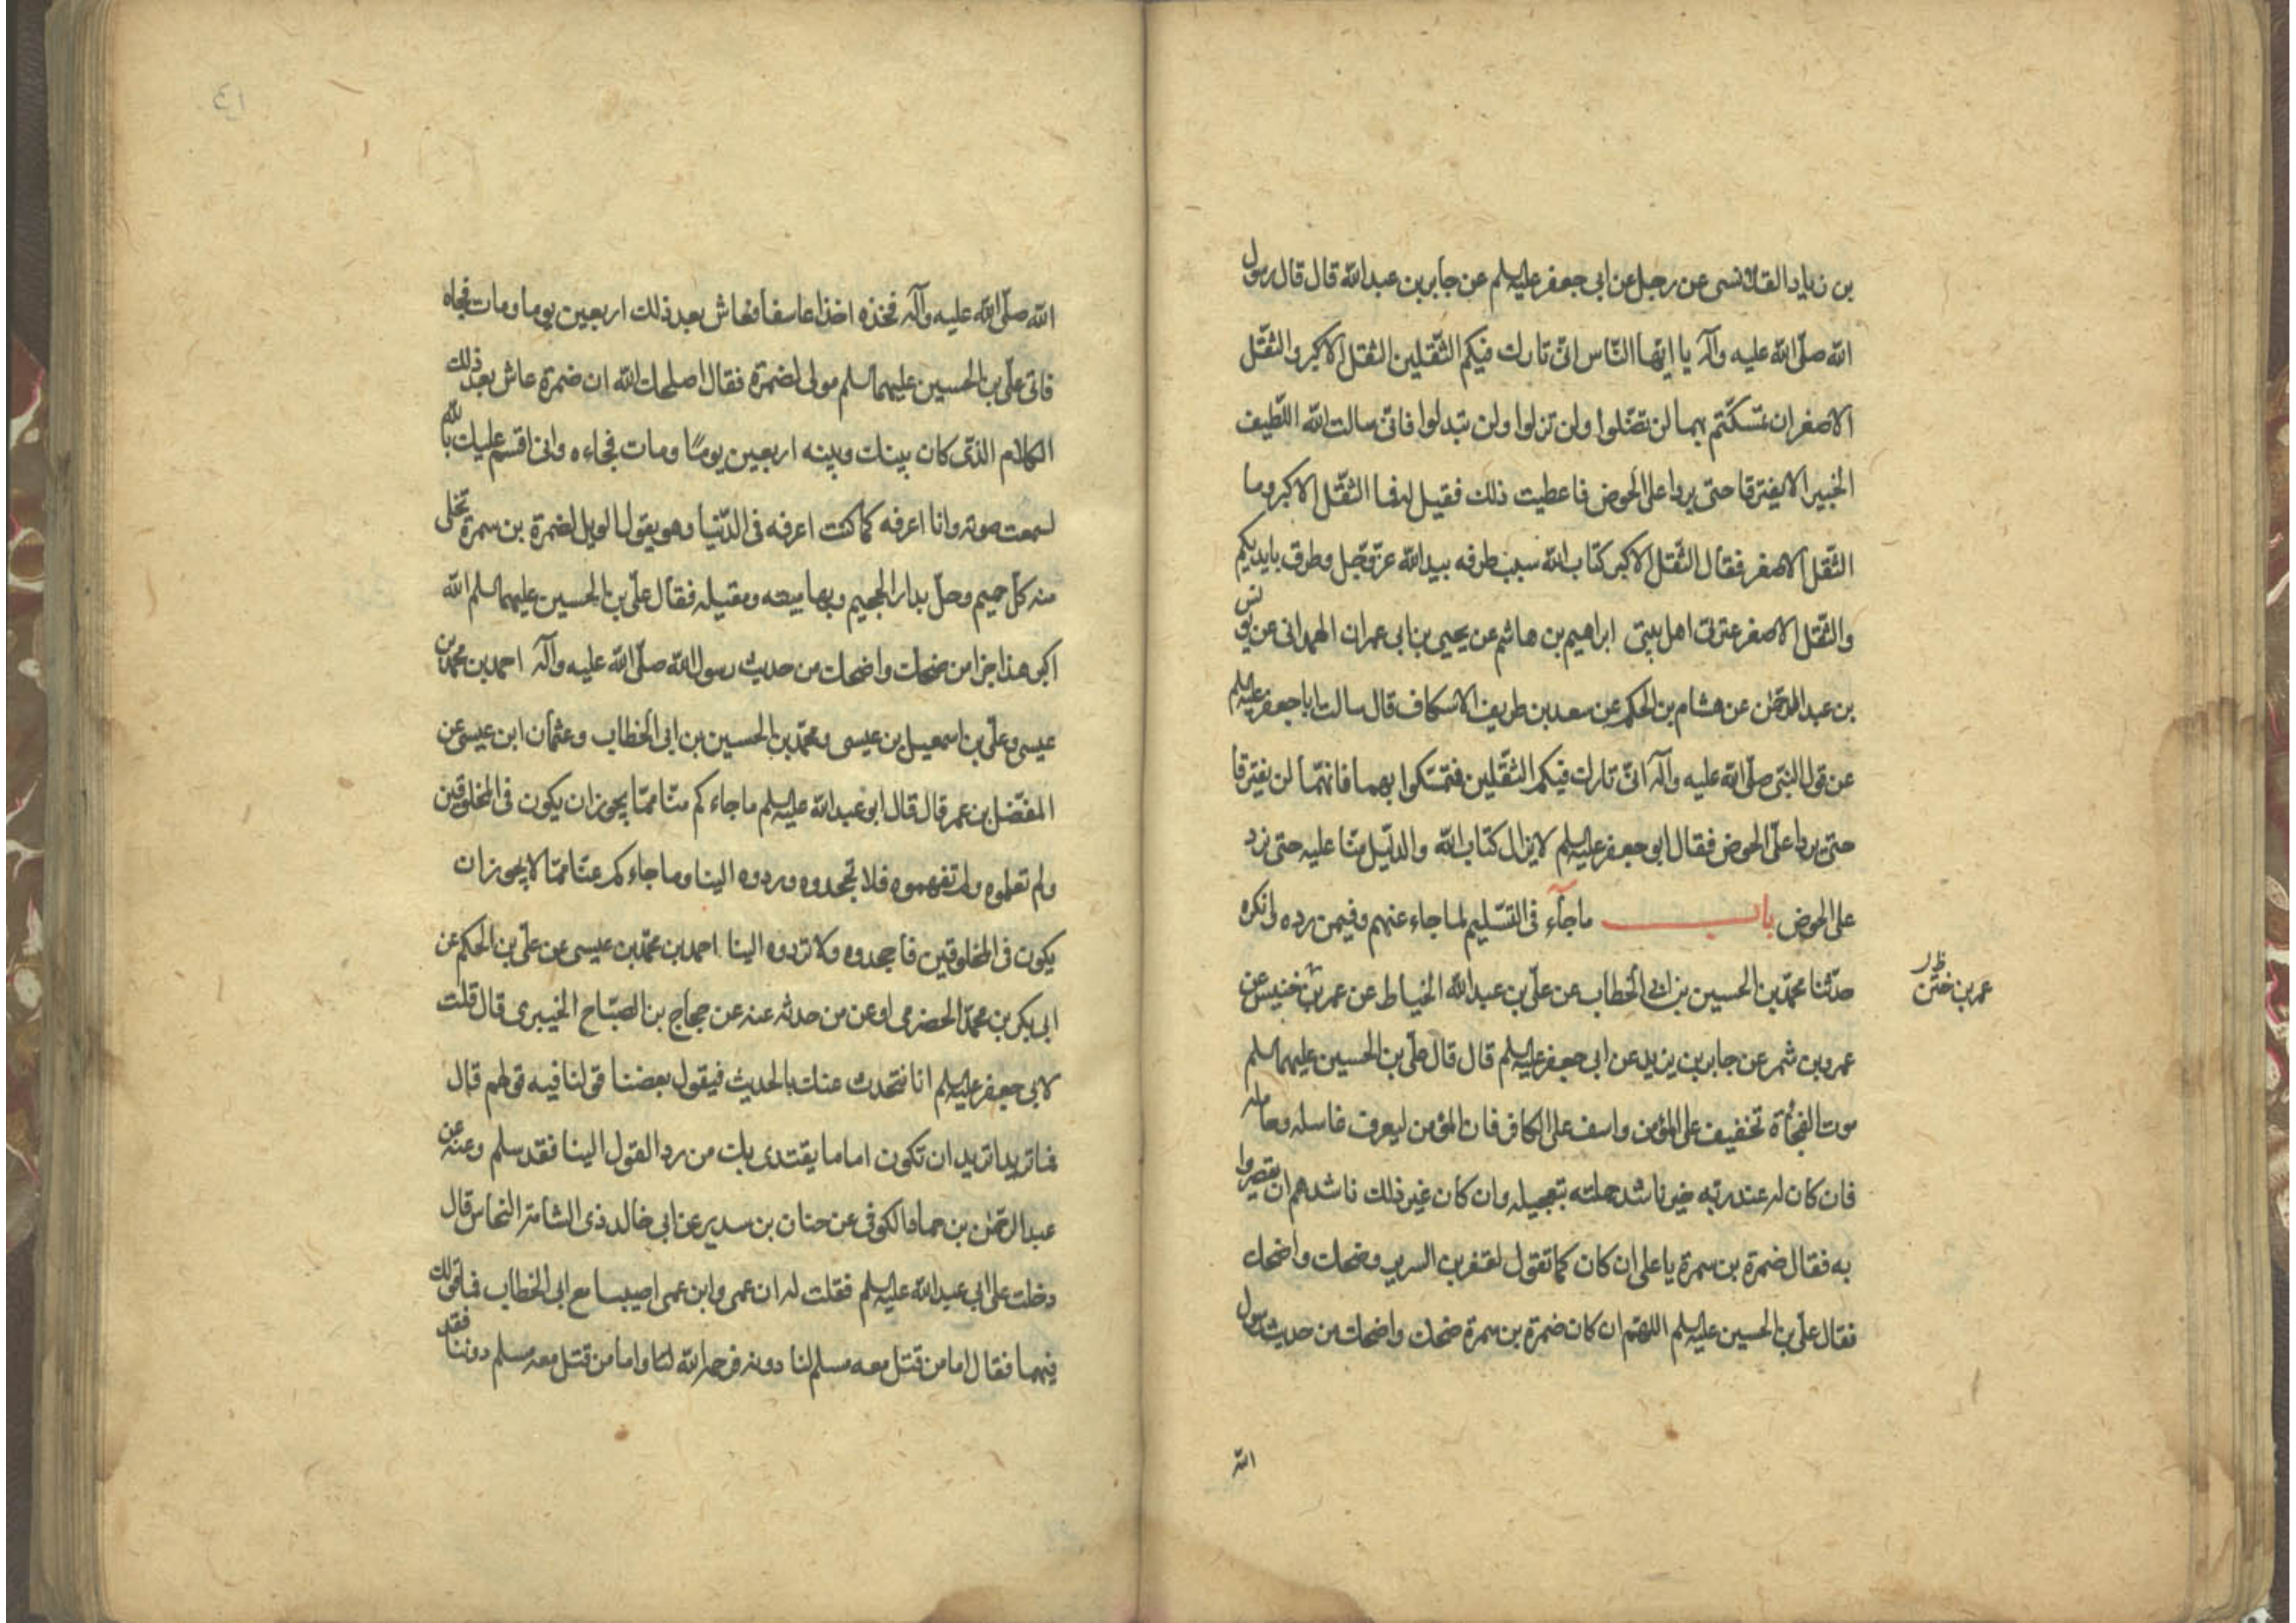 بن زياد القلانسى عن رجل عن ابى جعفر عليه السلم عن جابر بن عبد الله قال قال رسول
الله صلّى الله عليه وآله يا ايّها النّاس انّى تارك فيكم الثّقلين الثقل الاكبر والثقل
الاصغر ان تمسّكتم بهما لن تضلّوا ولن تزلوا ولن تبدلوا فانّى سالت الله اللّطيف
الخبير الا يفترقا حتى يردا على الحوض فاعطيت ذلك فقيل له فما الثقل الاكبر وما
الثّقل الاصغر فقال الثقل الاكبر كتاب الله سبب طرفه بيد الله عزّ وجّل وطرف بايديكم
والثّقل الاصغر عترتى اهل بيتى ابراهيم بن هاشم عن يحيى بن ابى عمران الهمدانى عن يونس
بن عبد الرحمٰن عن هشام بن الحكم عن سعد بن طريف الاسكاف قال سالت ابا جعفر عليه السلم
عن قول النبّى صلّى الله عليه وآله انّى تارك فيكم الثقلين فتمسّكوا بهما فانهّما لن يفترقا
حتى يردا علىّ الحوض فقال ابو جعفر عليه السلم لا يزال كتاب الله والدّليل منّا عليه حتى يرد
على الحوض باب ما جآء فى التسّليم لما جاء عنهم وفيمن رده وانكره
حدّثنا محمّد بن الحسين بن ابى الخطاب عن علّى بن عبد الله الخياط عن عمر بن خنيس عن
عمر بن ختن ظ ر
عمرو بن شمر عن جابر بن يزيد عن ابى جعفر عليه السلم قال قال علّى بن الحسين عليهما السلم
موت الفجأة تخفيف على المؤمن واسف على الكافر فان المؤمن ليعرف غاسله وحامله
فان كان له عند ربّه خير ناشد حملته بتعجيله وان كان غير ذلك ناشدهم ان يقصروا
به فقال ضمرة بن سمرة يا على ان كان كما تقول لقفز من السرير وضحك واضحك
فقال علّى بن الحسين عليه السلم اللهّم ان كان ضمرة بن سمرة ضحك واضحك من حديث رسول
الله
٤١
الله صلّى الله عليه وآله فخذه اخذا عاسفا فعاش بعد ذلك اربعين يوما ومات فجاه
فاتى علّى بن الحسين عليهما السلم مولى لضمرة فقال اصلحك الله ان ضمرة عاش بعد ذلك
الكلام الذّى كان بينك وبينه اربعين يومًا ومات فجاءه وانى اقسم عليك بالله
لسمعت صوته وانا اعرفه كما كنت اعرفه فى الدّنيا وهو يقول الويل لضمرة بن سمرة تخّلى
منه كلّ حميم وحلّ بدار الجحيم وبها مبيته ومقيله فقال علّى بن الحسين عليهما السلم الله
اكبر هذا جزا من ضحك واضحك من حديث رسول الله صلّى الله عليه وآله احمد بن محمّد بن
عيسى وعلّى بن اسمعيل بن عيسى ومحمّد بن الحسين بن ابى الخطاب وعثمان ابن عيسى عن
المفضّل بن عمر قال قال ابو عبد الله عليه السلم ما جاءكم منّا ممّا يجوز ان يكون فى المخلوقين
ولم تعلموه ولم تفهموه فلا تجحدوه وردوه الينا وما جاءكم عنّا ممّا لا يجوز ان
يكون فى المخلوقين فاجحدوه ولا تردوه الينا احمد بن محمّد بن عيسى عن علّى بن الحكم عن
ابى بكر بن محمّد الحضرمى او عن من حدثه عنه عن حجاج بن الصبّاح الخيبرى قال قلت
لابى جعفر عليه السلم انا نتحدث عنك بالحديث فيقول بعضنا قولنا فيه قولهم قال
فما تريد اتريد ان تكون اماما يقتدى بك من رد القول الينا فقد سلم وعنه عن
عبد الرحمٰن بن حماد الكوفى عن حنان بن سدير عن ابى خالد ذى الشامة النحاس قال
دخلت على ابى عبد الله عليه السلم فقلت له ان عمى وابن عمى اصيبا مع ابى الخطاب فما قولك
فيهما فقال اما من قتل معه مسلم لنا دونه فرحمه الله واما من قتل معه مسلم دوننا فقد